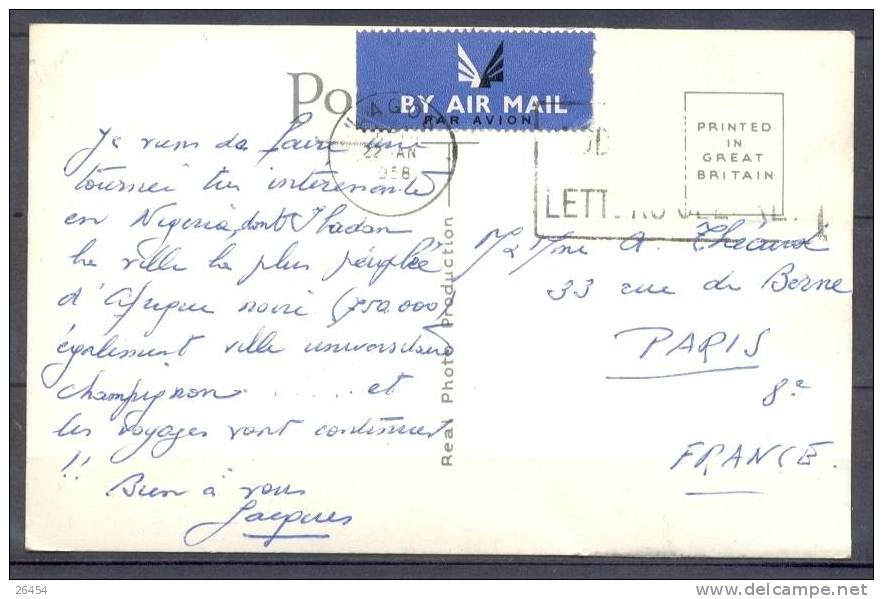 Po
BY AIR MAIL
PAR AVION
LAGOS
22 JAN
1958
PRINTED
IN
GREAT
BRITAIN
Je viens de faire une
tournée très intéressante
en Nigeria, dont Ibadan
la ville la plus peuplée
d'Afrique noire (750.000)
également ville universitaire
champignon ...... et
les voyages vont continuer
!!
Bien à vous
Jacques
Real Photo Production
33 rue de Berne
PARIS
8e
FRANCE.
26454
delcampe.net